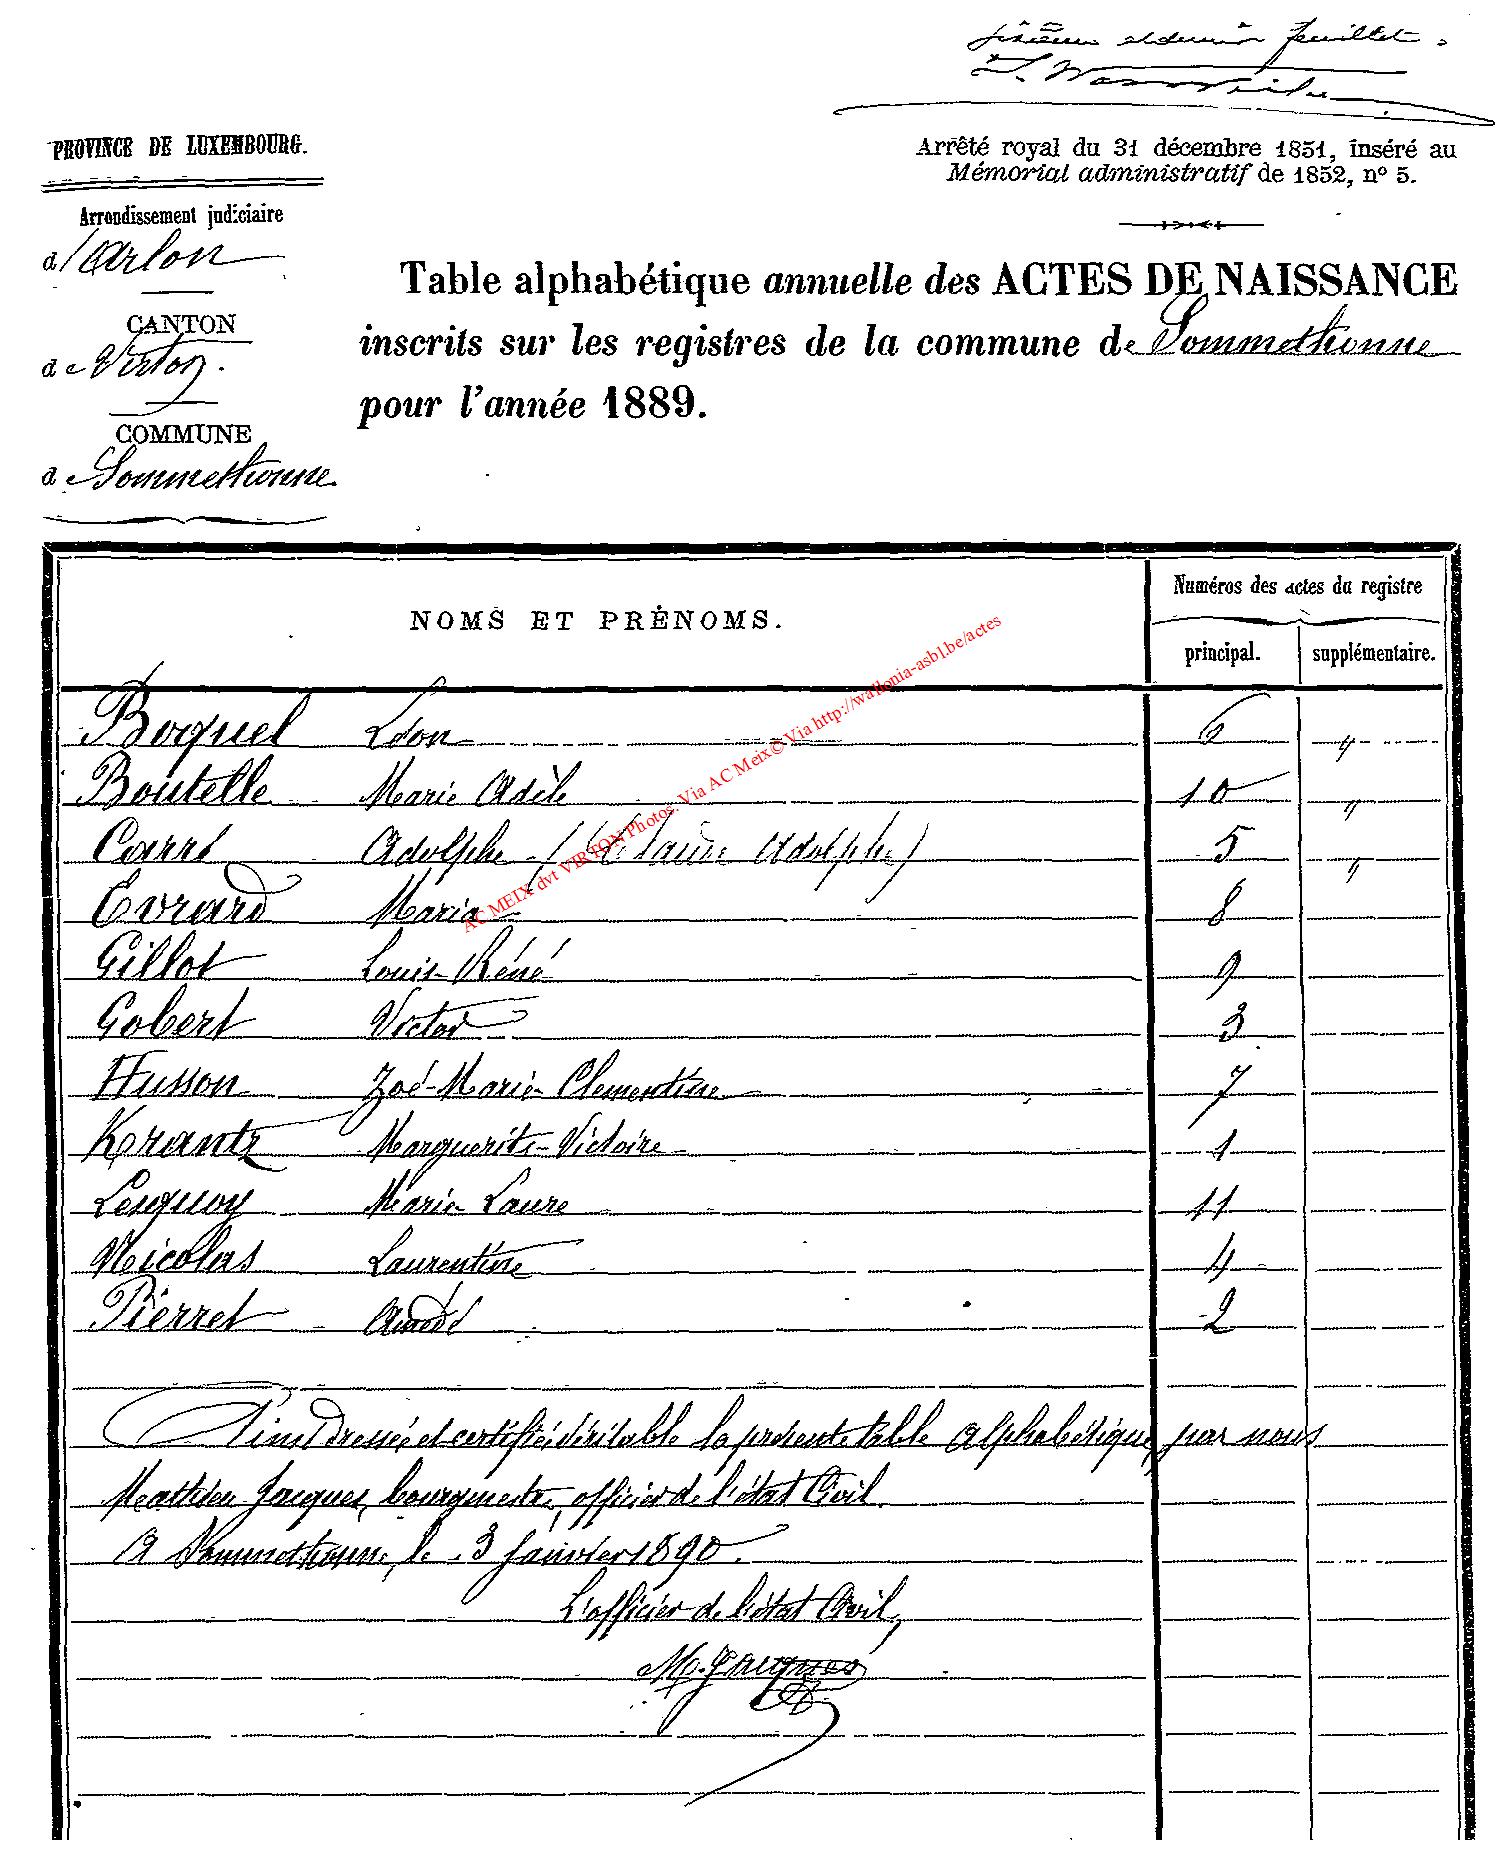 et dernier feuillet.
PROVINCE DE LUXEMBOURG.
Arrêté royal du 31 décembre 1851, inséré au
Mémorial administratif de 1852, nº 5.
Arrondissement judiciaire
d'Arlon
CANTON
de Virton.
COMMUNE
de Sommethonne.
Table alphabétique annuelle des ACTES DE NAISSANCE
inscrits sur les registres de la commune de Sommethonne
pour l'année 1889.
NOMS ET PRÉNOMS.
Numéros des actes du registre
principal. supplémentaire.
Boquel Léon 6 "
Boutelle Marie Adèle 10 "
Carré Adolphe (Claude Adolphe) 5 "
Evrard Maria 8
Gillot Louis-Réné 9
Gobert Victor 3
Husson Zoé-Marie-Clementine 7
Krantz Marguerite-Victoire 1
Lequoy Marie-Laure 11
Nicolas Laurentine 4
Pierret Amédé 2
Ainsi dressée et certifiée véritable la présente table alphabétique, par nous
Mathieu Jacques, bourgmestre, officier de l'état Civil.
A Sommethonne, le 3 Janvier 1890.
L'officier de l'état Civil,
M. Jacques
AC MEIX dvt VIRTON Photos. Via AC Meix© Via http://wallonia-asbl.be/actes